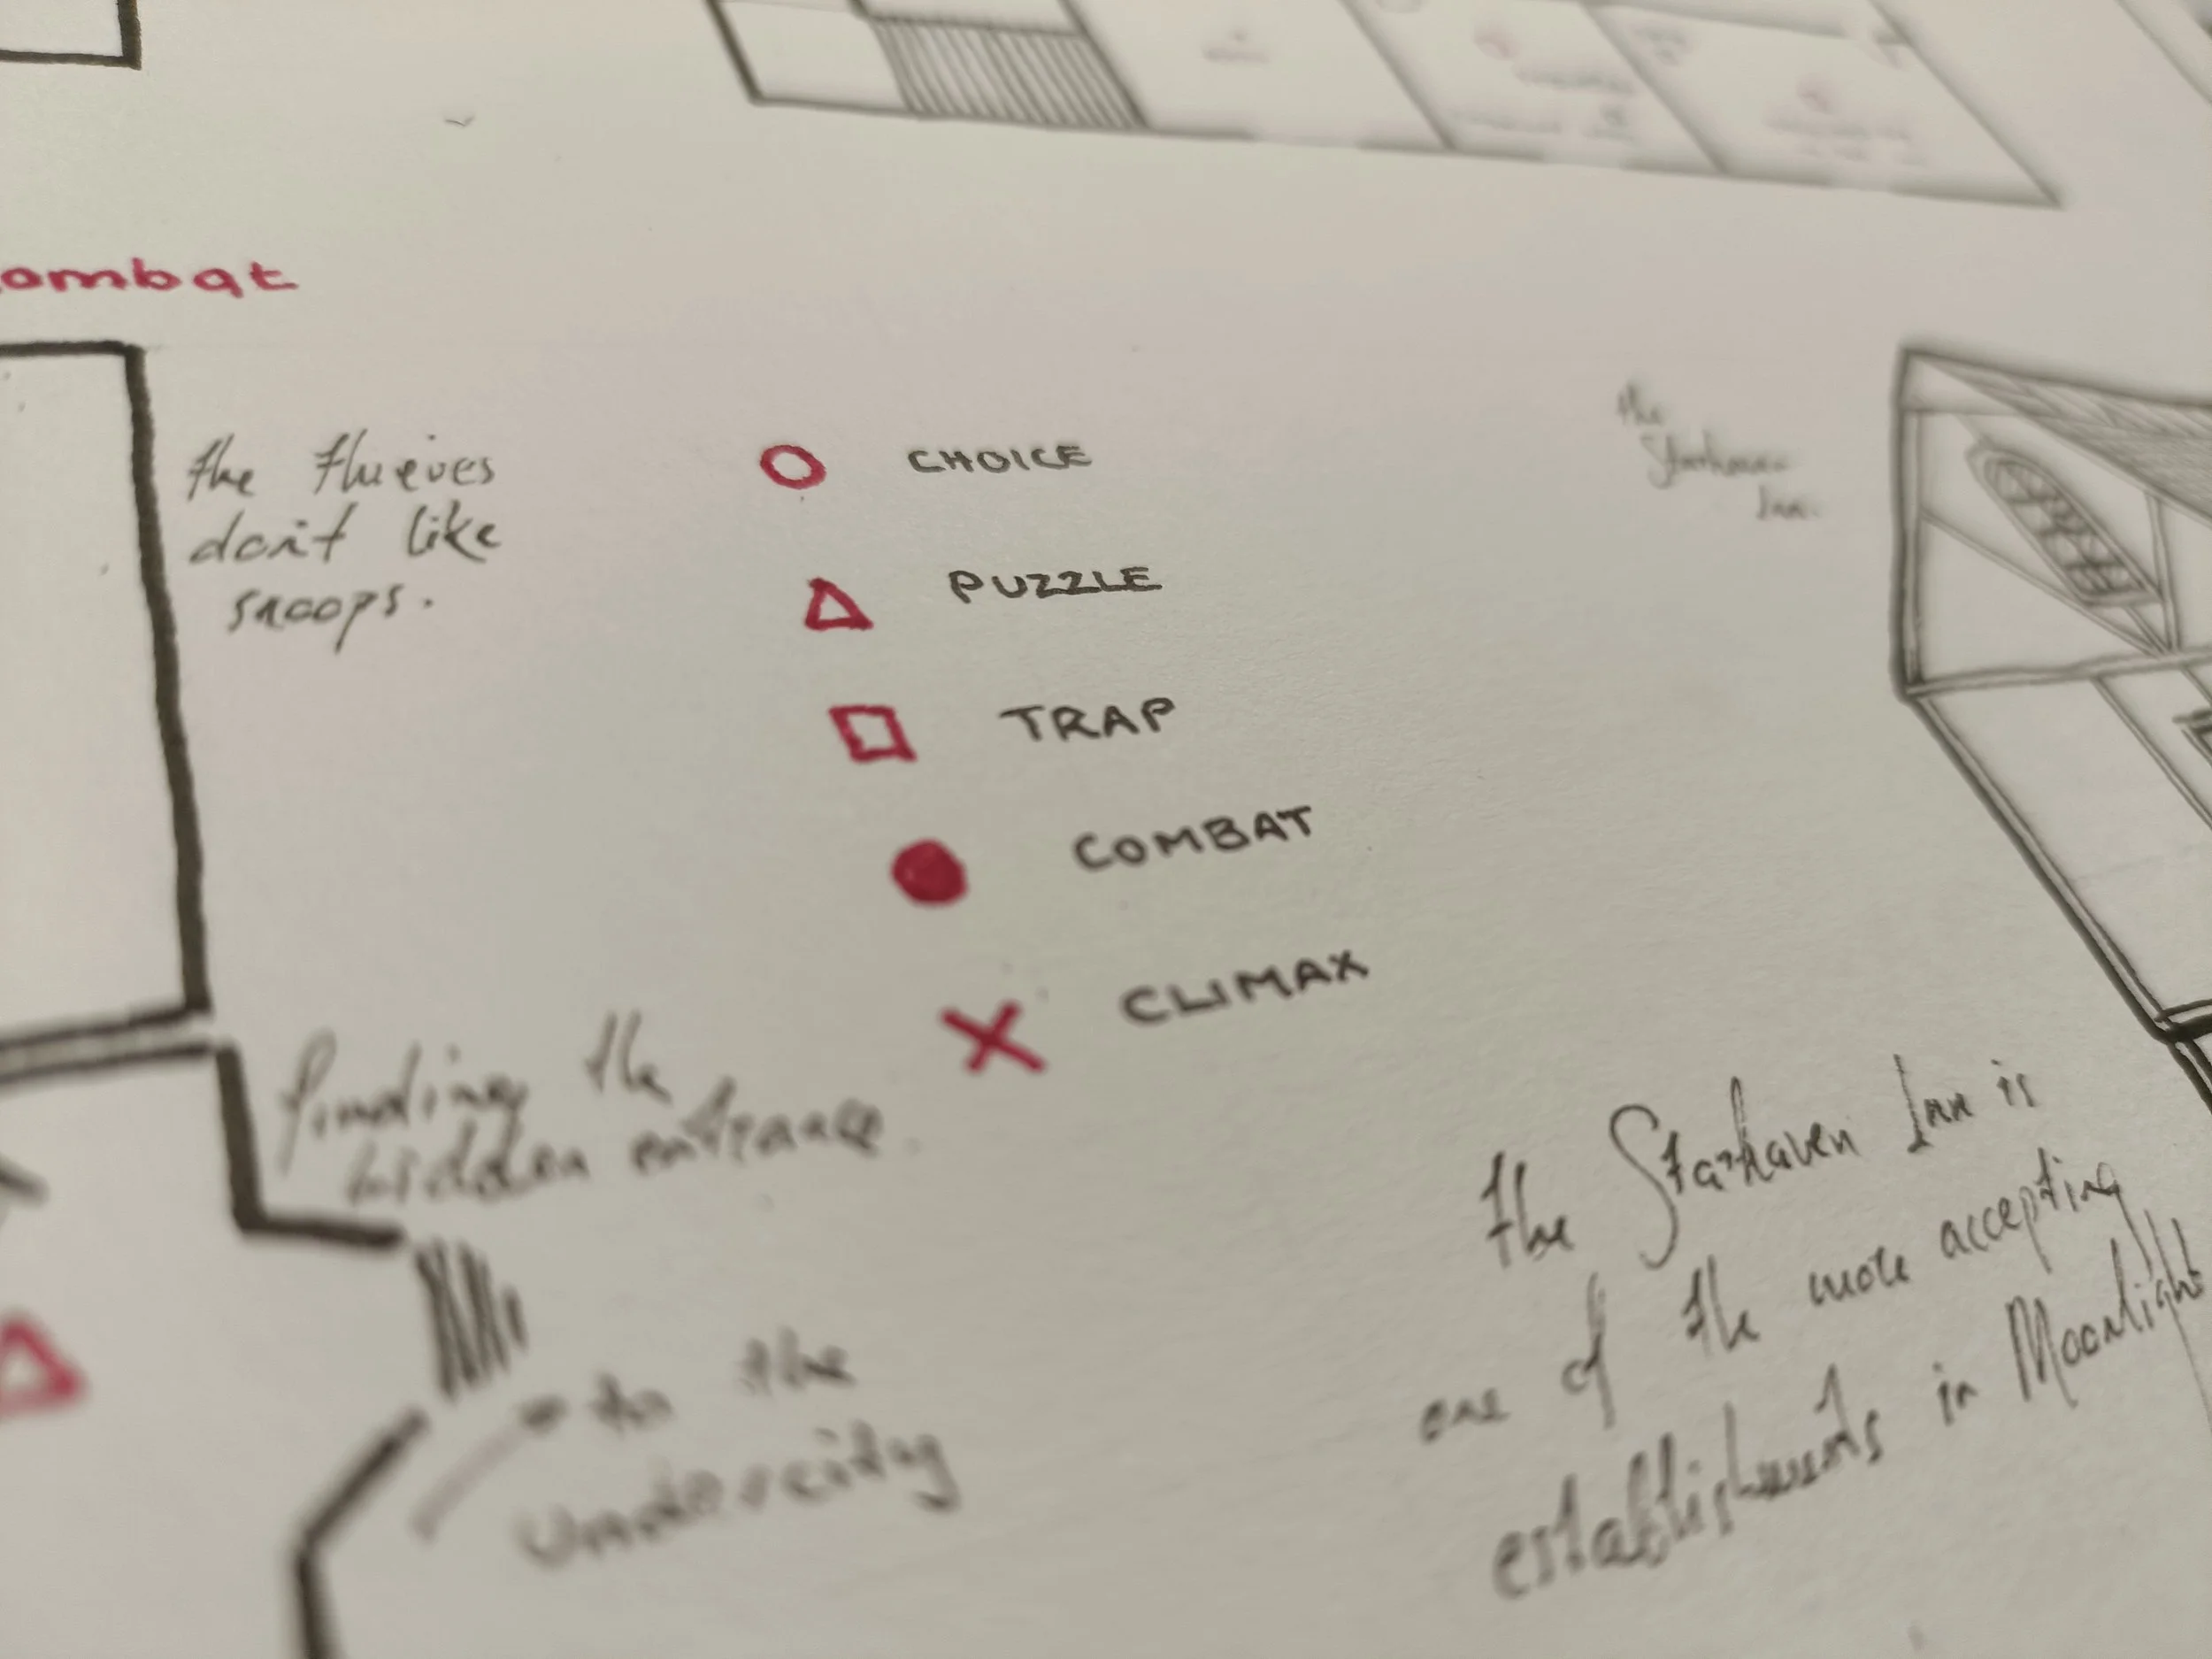 ombat
the thieves
don't like
snoops.
CHOICE
PUZZLE
TRAP
COMBAT
CLIMAX
the
Starhaven
Inn.
finding the
hidden entrance.
to the
Undercity
the Starhaven Inn is
one of the more accepting
establishments in Moonlight